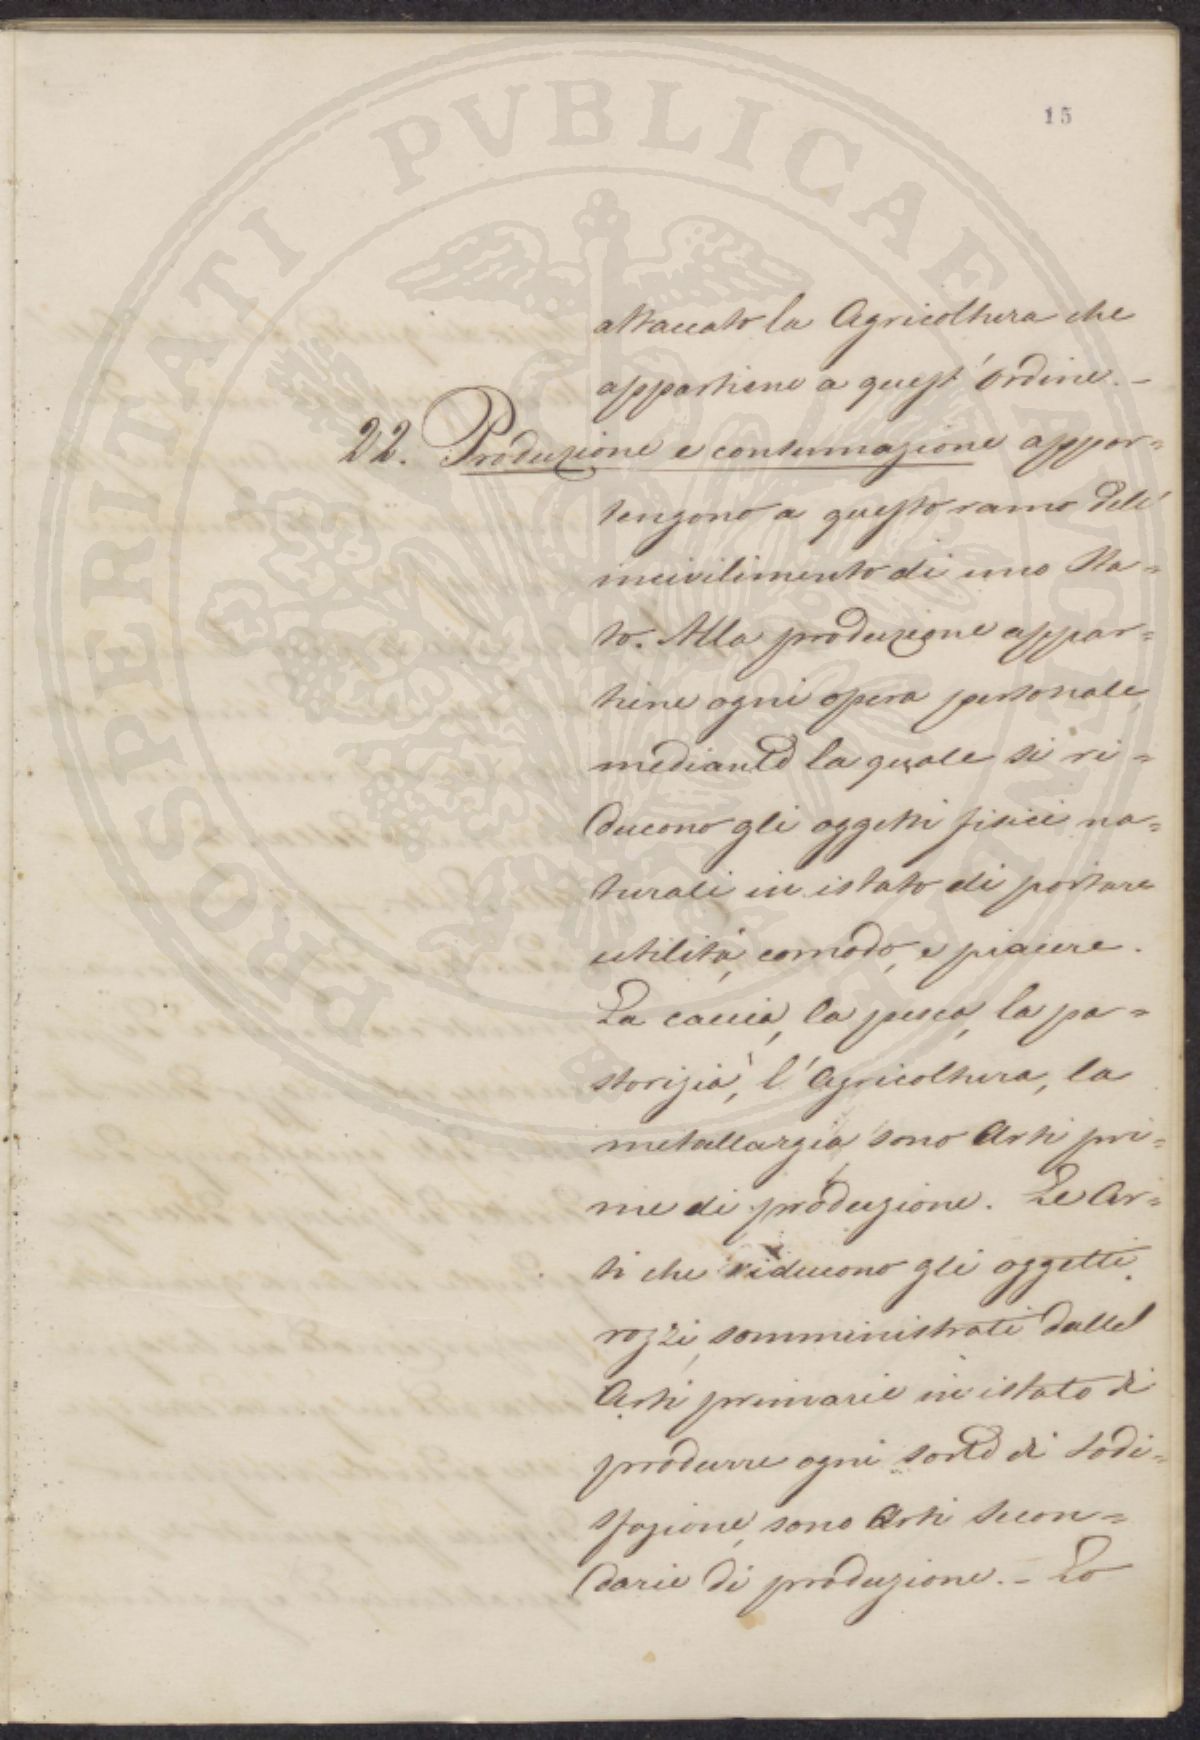 15
attaccato la Agricoltura che
appartiene a quest'ordine. –
22. Produzione e consumazione appar=
tengono a questo ramo dell'
incivilimento di uno Sta=
to. Alla produzione appar=
tiene ogni opera personale,
mediante la quale si ri=
ducono gli oggetti fisici na=
turali in istato di portare
utilità, comodo, e piacere.
La caccia, la pesca, la pa=
storizia, l'Agricoltura, la
metallurgia sono Arti pri=
me di produzione. Le Ar=
ti che riducono gli oggetti
rozzi, somministrati dalle
Arti primarie in istato di
produrre ogni sorte di sodi=
sfazione, sono Arti secon=
darie di produzione. – Lo
PROSPERITATI PVBLICAE AVGENDAE